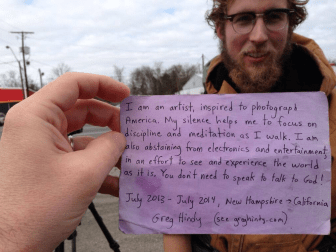 I am an artist, inspired to photograph
America. My silence helps me to focus on
discipline and meditation as I walk. I am
also abstaining from electronics and entertainment,
in an effort to see and experience the world
as it is. You don't need to speak to talk to God!
July 2013 - July 2014, New Hampshire → California
Greg Hindy (see greghindy.com)